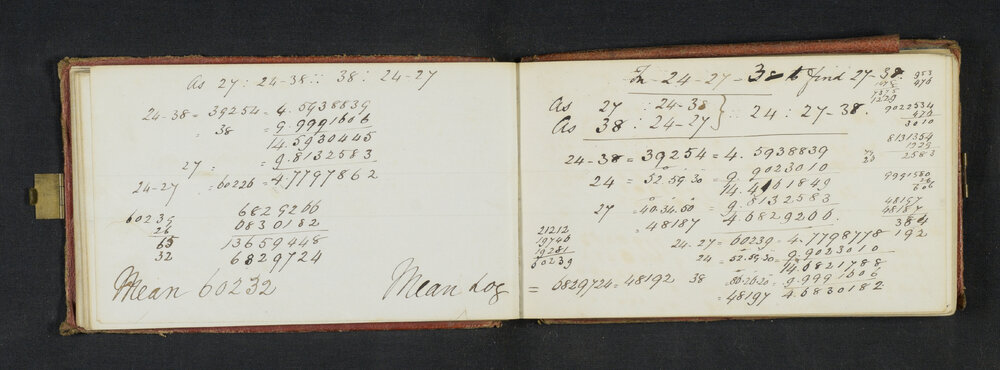 As 27 : 24-38 :: 38 : 24-27
24-38 = 39254 = 4.5938839
= 38 = 9.9991606
14.5930445
27 = = 9.8132583
24-27 = 60226 = 4.7797862
60239
26
65
32
6829200
6830182
13659448
6829724
Mean 60232
Mean Log
In 24-27-38 to find 27-38.
As 27 : 24-38
As 38 : 24-27 } :: 24 : 27-38.
24-38 = 39254 = 4.5938839
24 = 52.59.30 = 9.9023010
14.4961849
27 = 40.34.50 = 9.8132583
= 48187 4.6829266.
24.27 = 60239 = 4.7798778
24 = 52.59.30 = 9.9023010
14.6821788
38 = 9.9991606
= 48197 4.6830182
= 6829724 = 48192
21212
19746
19281
60239
953
976
7375
1229
9022534
3010
8131354
1229
2583
9991580
606
48197
48187
384
192